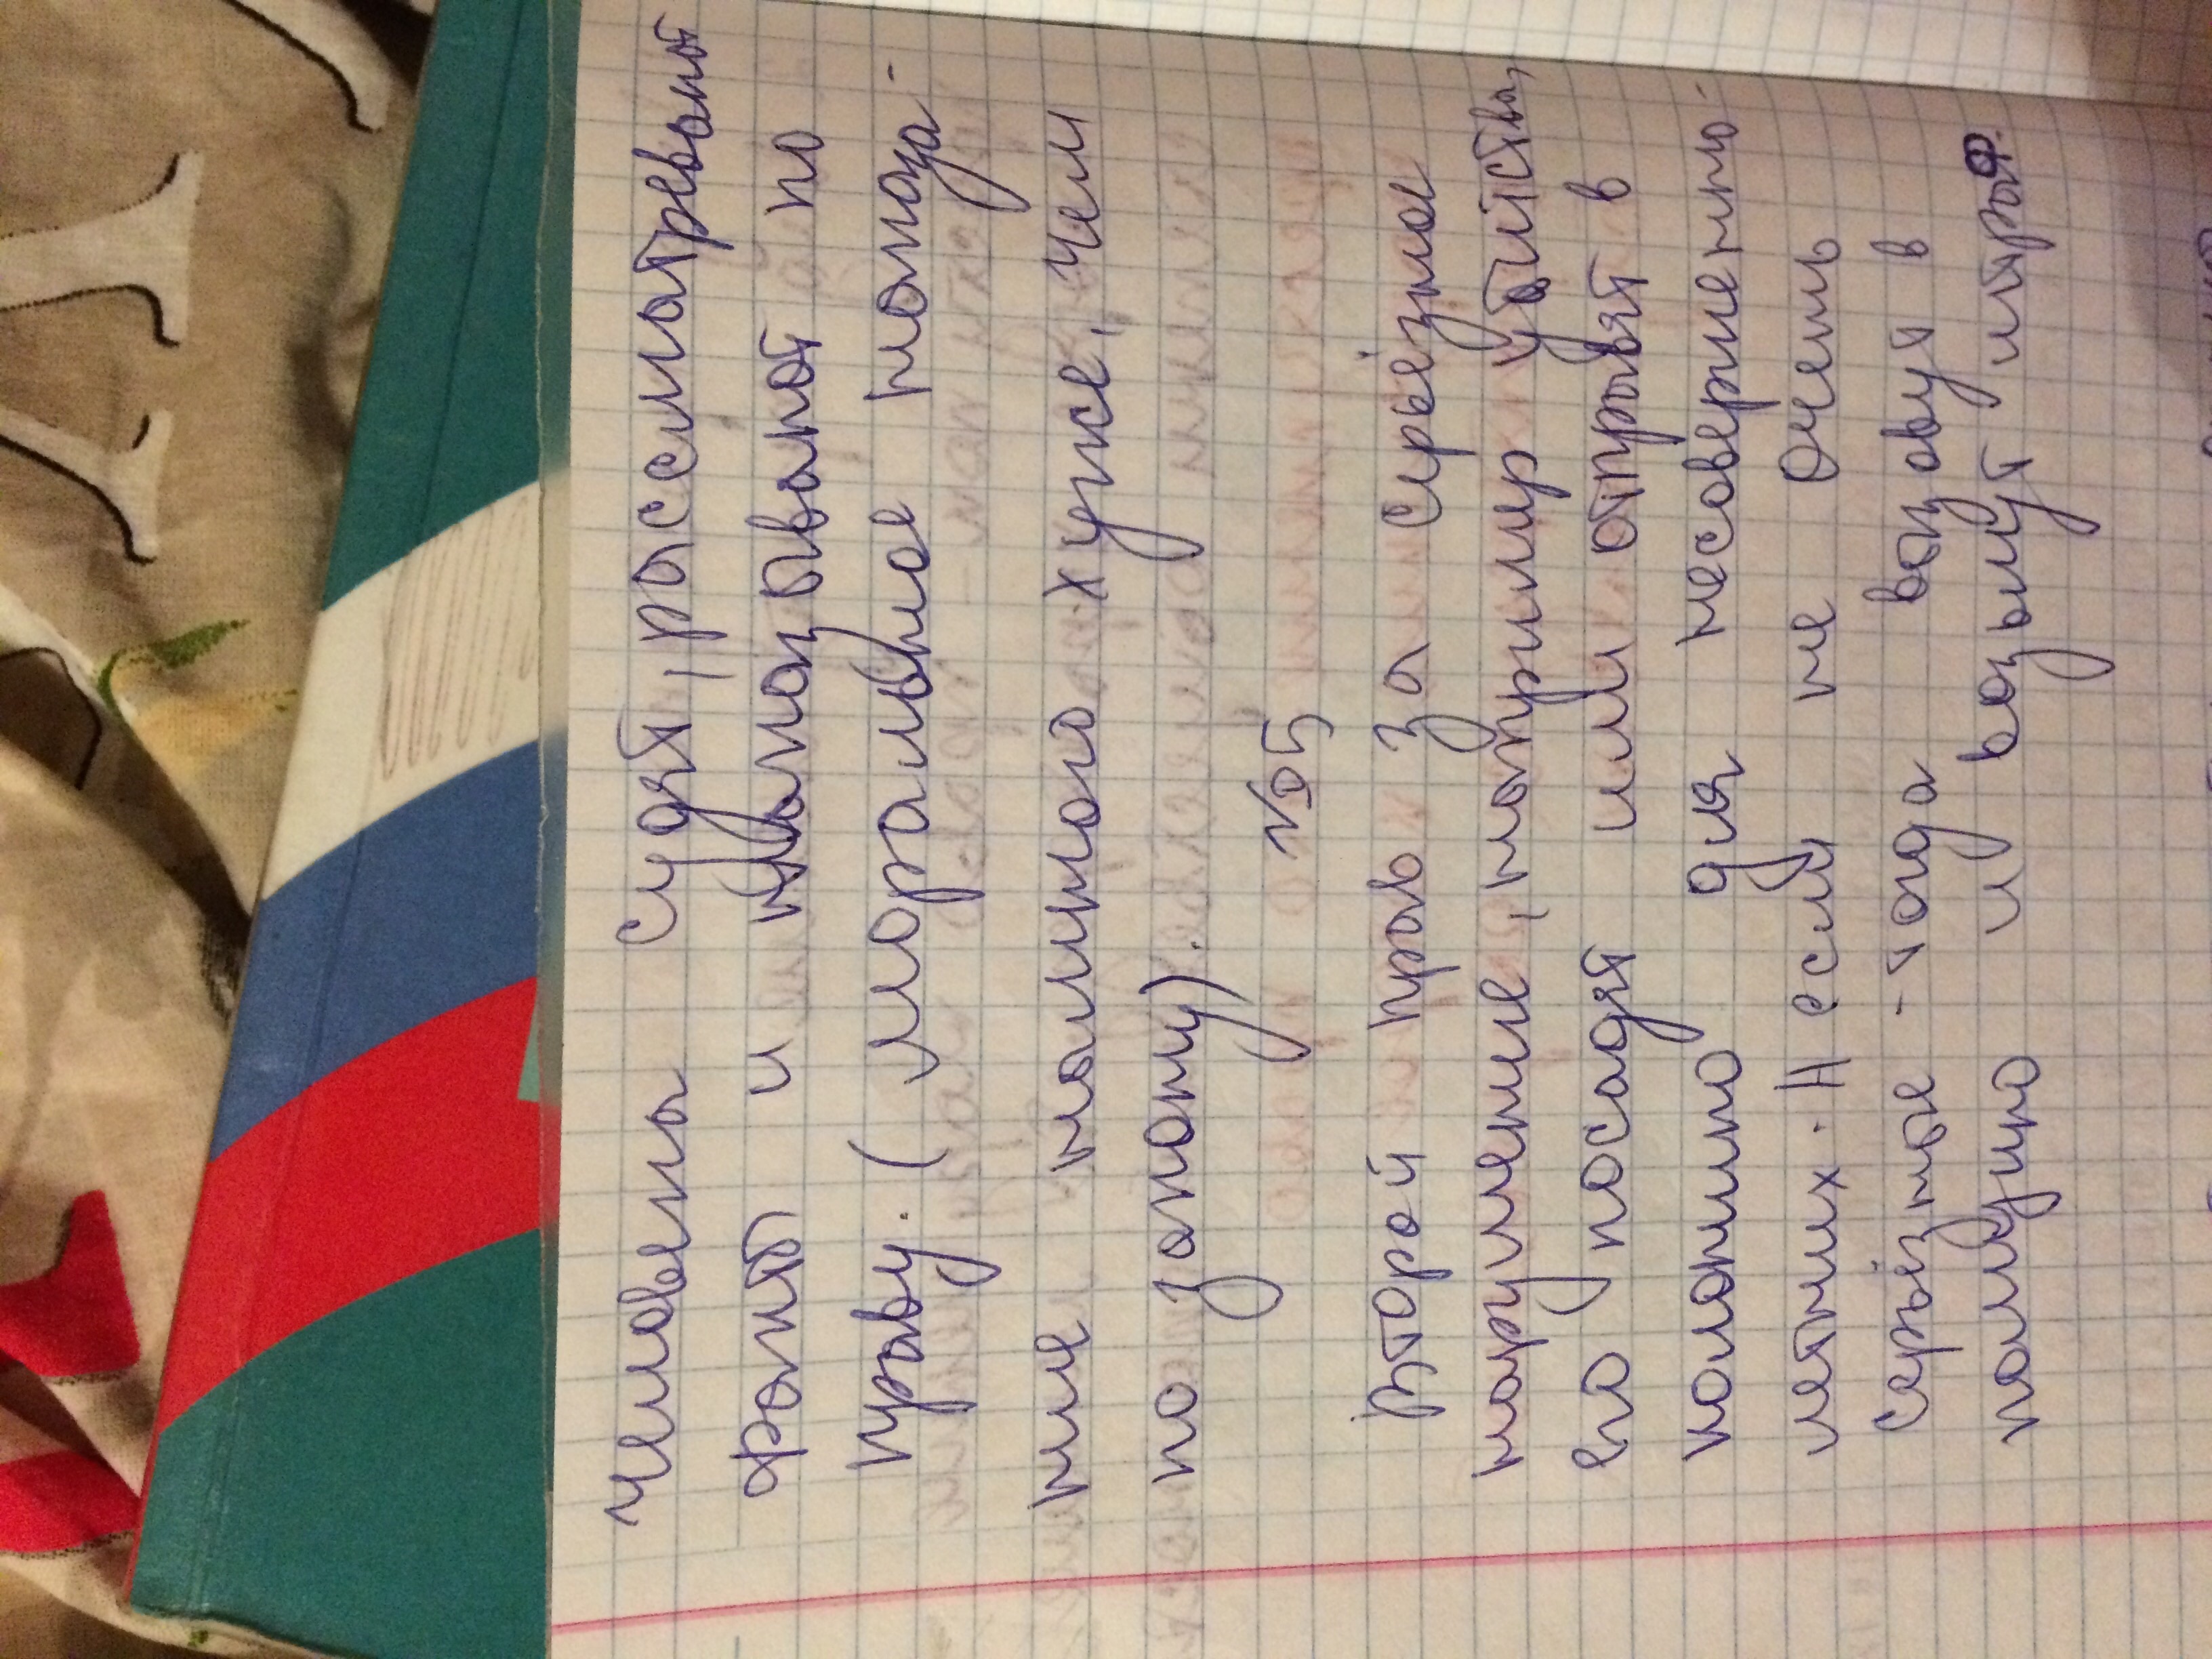 человека судят, рассматревают
факты и наказывают по
праву. (моральное наказа-
ние намного хуже, чем
по закону).
№5
Второй прав за сирьёзное
нарушение, например убийства,
его посадят или отправят в
колонию для несовершенно-
летних. А если не очень
серьёзное - тогда вызовут в
полицию и возьмут штраф.